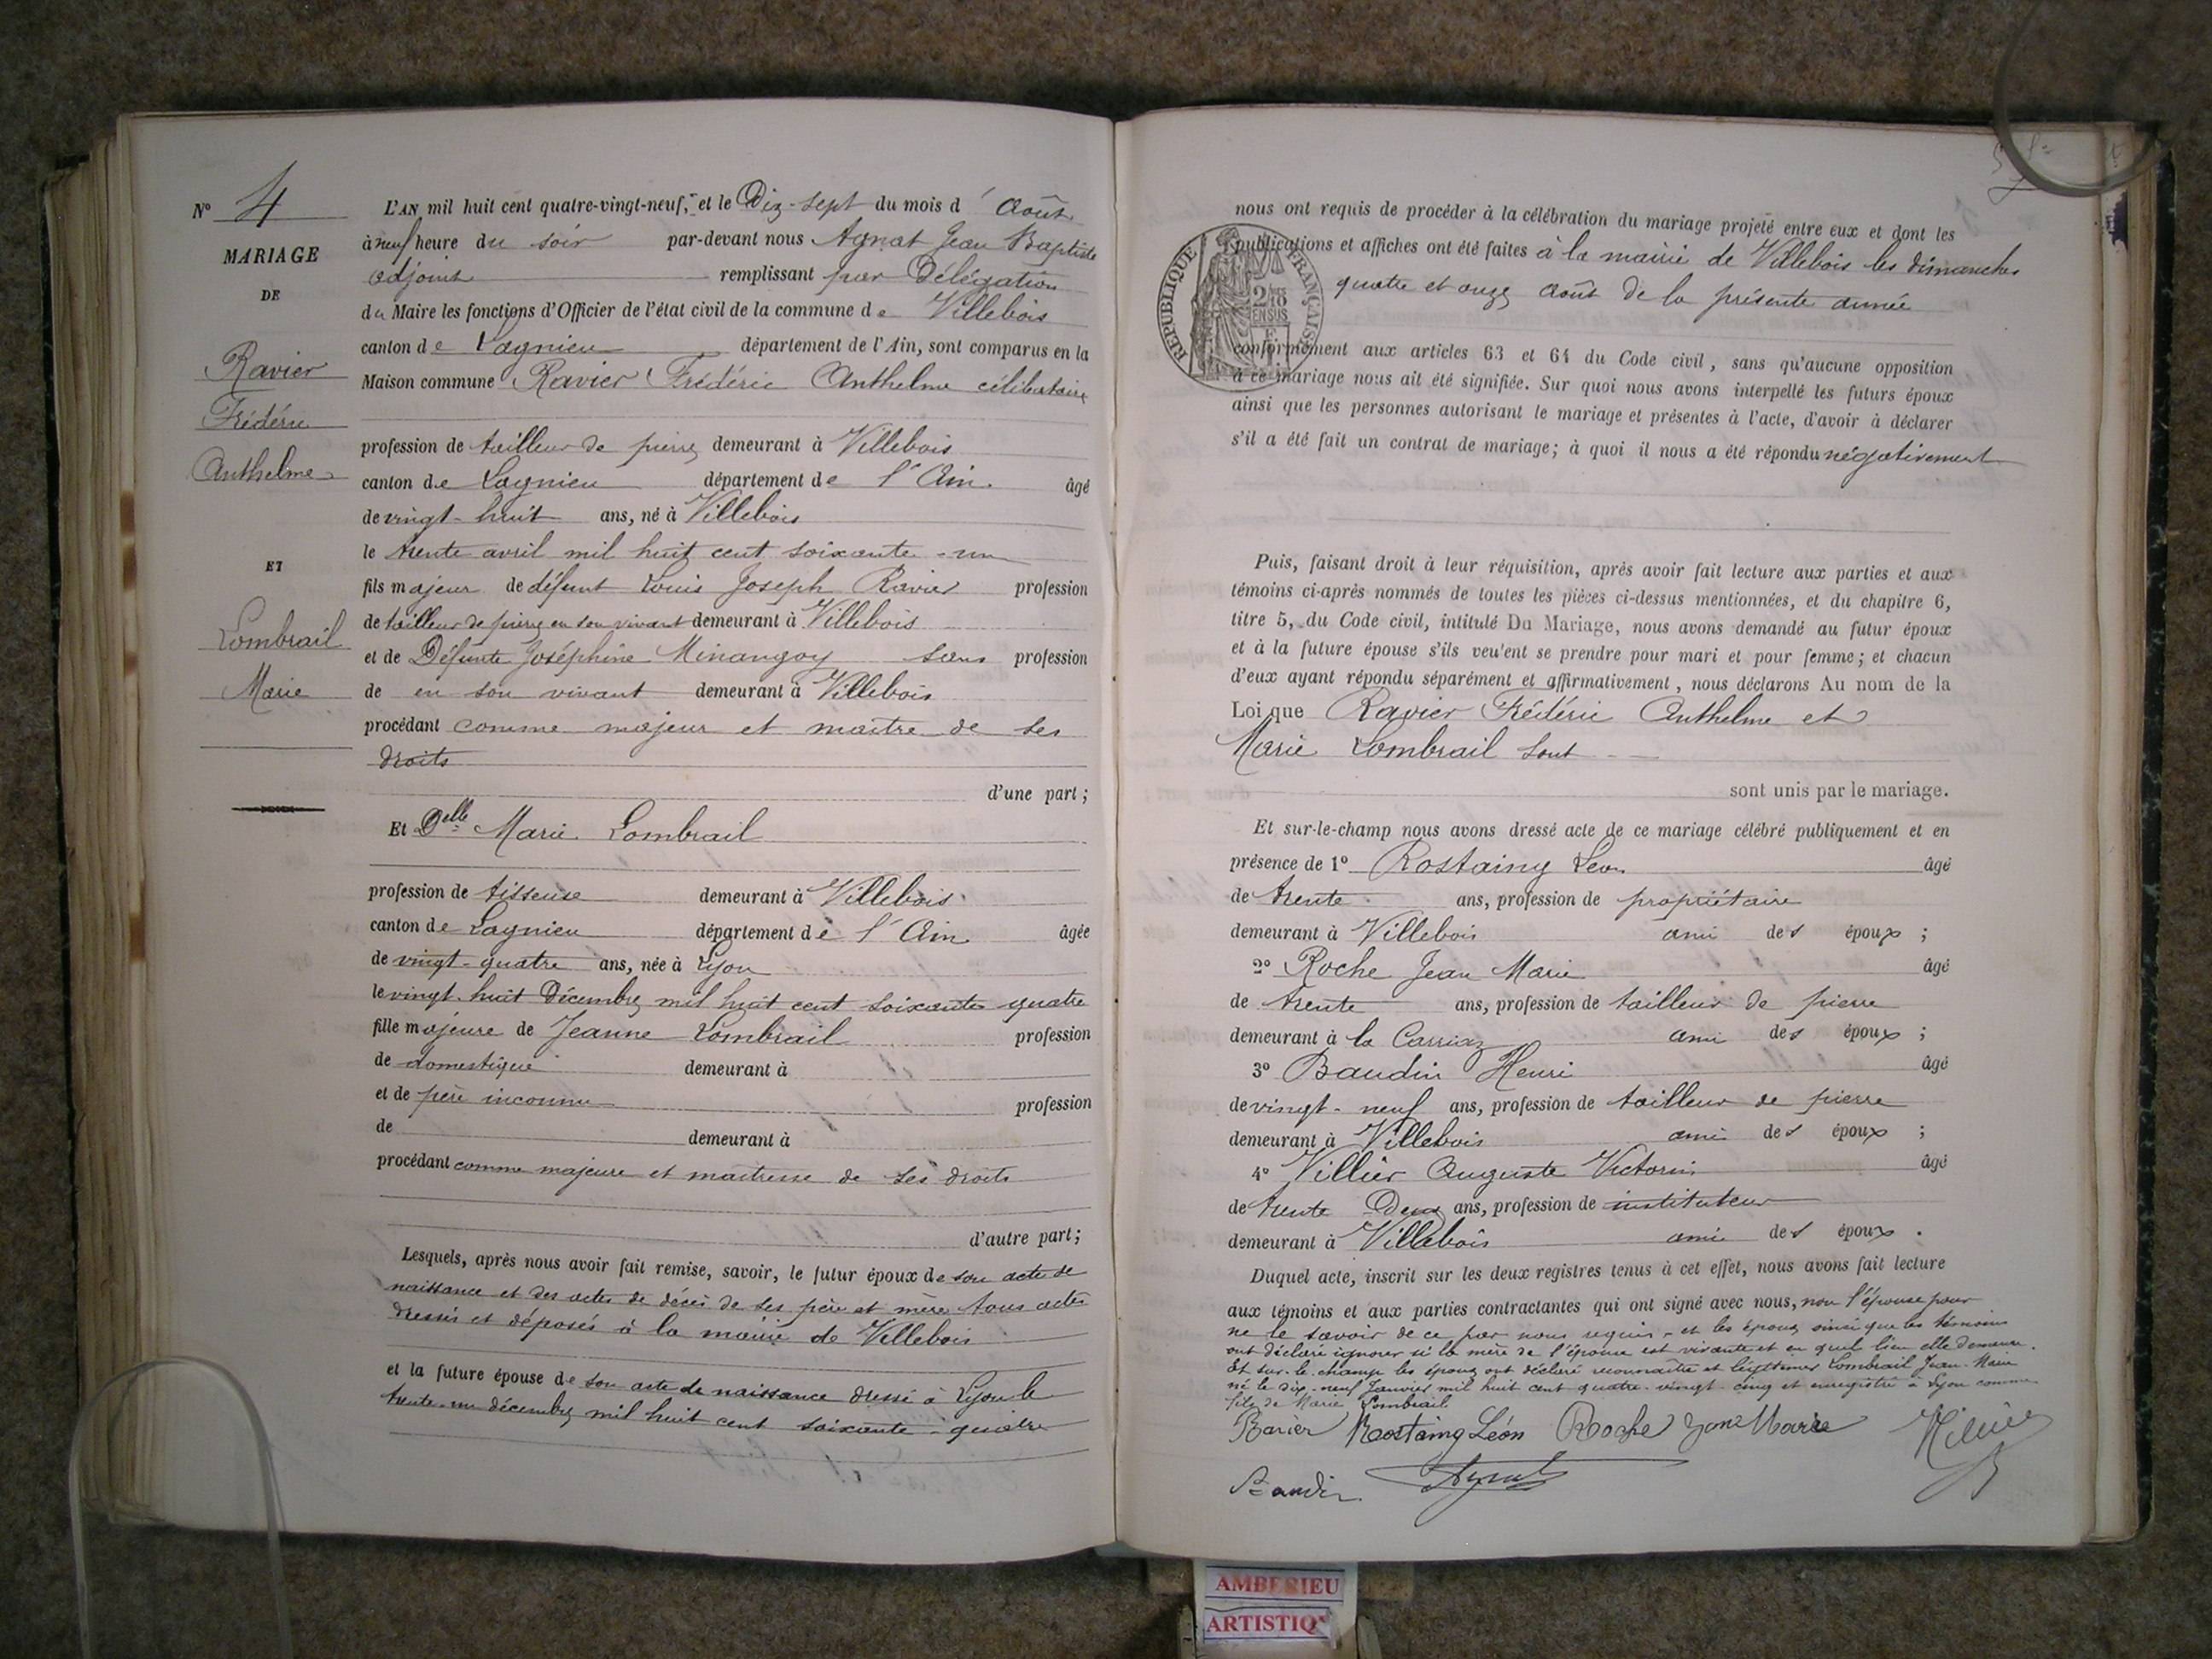 N° 4
MARIAGE
DE
Ravier
Frédéric
Anthelme
ET
Lombrail
Marie
L'AN mil huit cent quatre-vingt-neuf, et le Dix-sept du mois d'Août
à neuf heure du soir par-devant nous Agnat Jean Baptiste
adjoint remplissant par Délégation
du Maire les fonctions d'Officier de l'état civil de la commune de Villebois
canton de Lagnieu département de l'Ain, sont comparus en la
Maison commune Ravier Frédéric Anthelme célibataire
profession de tailleur de pierre demeurant à Villebois
canton de Lagnieu département de l'Ain. âgé
de vingt-huit ans, né à Villebois
le trente avril mil huit cent soixante-un
fils majeur de défunt Louis Joseph Ravier profession
de tailleur de pierre en son vivant demeurant à Villebois
et de Défunte Joséphine Minangoy sans profession
de en son vivant demeurant à Villebois
procédant comme majeur et maitre de ses
droits
d'une part;
Et Delle Marie Lombrail
profession de tisseuse demeurant à Villebois
canton de Lagnieu département de l'Ain âgée
de vingt-quatre ans, née à Lyon
le vingt-huit Décembre mil huit cent soixante quatre
fille majeure de Jeanne Lombrail profession
de domestique demeurant à
et de père inconnu profession
de demeurant à
procédant comme majeure et maitresse de ses droits
d'autre part;
Lesquels, après nous avoir fait remise, savoir, le futur époux de son acte de
naissance et des actes de décès de ses père et mère tous actes
dressés et déposés à la mairie de Villebois
et la future épouse de son acte de naissance dressé à Lyon le
trente-un décembre mil huit cent soixante-quatre
nous ont requis de procéder à la célébration du mariage projeté entre eux et dont les
publications et affiches ont été faites à la mairie de Villebois les dimanches
quatre et onze Août de la présente année
RÉPUBLIQUE FRANÇAISE
conformément aux articles 63 et 64 du Code civil, sans qu'aucune opposition
à ce mariage nous ait été signifiée. Sur quoi nous avons interpellé les futurs époux
ainsi que les personnes autorisant le mariage et présentes à l'acte, d'avoir à déclarer
s'il a été fait un contrat de mariage; à quoi il nous a été répondu négativement
Puis, faisant droit à leur réquisition, après avoir fait lecture aux parties et aux
témoins ci-après nommés de toutes les pièces ci-dessus mentionnées, et du chapitre 6,
titre 5, du Code civil, intitulé Du Mariage, nous avons demandé au futur époux
et à la future épouse s'ils veu'ent se prendre pour mari et pour femme; et chacun
d'eux ayant répondu séparément et affirmativement, nous déclarons Au nom de la
Loi que Ravier Frédéric Anthelme et
Marie Lombrail sont
sont unis par le mariage.
Et sur-le-champ nous avons dressé acte de ce mariage célébré publiquement et en
présence de 1° Rostaing Leon âgé
de trente ans, profession de propriétaire
demeurant à Villebois ami des époux ;
2° Roche Jean Marie âgé
de trente ans, profession de tailleur de pierre
demeurant à la Carriaz ami des époux ;
3° Baudin Henri âgé
de vingt-neuf ans, profession de tailleur de pierre
demeurant à Villebois ami des époux ;
4° Villier Auguste Victorin âgé
de trente Deux ans, profession de instituteur
demeurant à Villebois ami des époux .
Duquel acte, inscrit sur les deux registres tenus à cet effet, nous avons fait lecture
aux témoins et aux parties contractantes qui ont signé avec nous, non l'épouse pour
ne le savoir de ce par nous requis - et les époux ainsi que les témoins
ont déclaré ignorer si la mère de l'épouse est vivante et en quel lieu elle demeure.
Et sur-le-champ les époux ont déclaré reconnaître et légitimer Lombrail Jean-Marie
né le dix-neuf Janvier mil huit cent quatre-vingt-cinq et enregistré à Lyon comme
fils de Marie Lombrail
Ravier Rostaing Léon Roche Jean Marie Villier
Baudin Agnat
AMBERIEU
ARTISTIQ